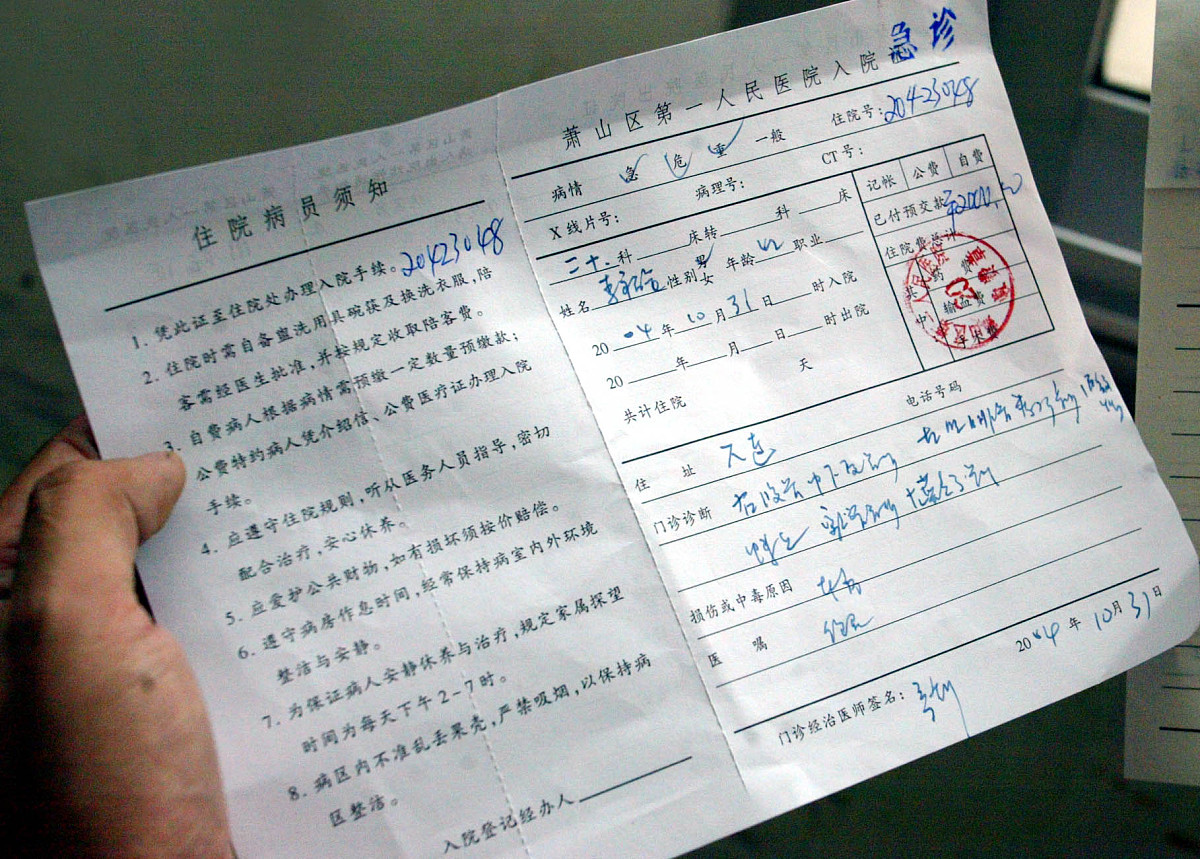 住院病员须知
20423048
1. 凭此证至住院处办理入院手续。
2. 住院时需自备盥洗用具碗筷及换洗衣服，陪
客需经医生批准，并按规定收取陪客费。
3. 自费病人根据病情需预缴一定数量预缴款；
公费特约病人凭介绍信、公费医疗证办理入院
手续。
4. 应遵守住院规则，听从医务人员指导，密切
配合治疗，安心休养。
5. 应爱护公共财物，如有损坏须按价赔偿。
6. 遵守病房作息时间，经常保持病室内外环境
整洁与安静。
7. 为保证病人安静休养与治疗，规定家属探望
时间为每天下午2-7时。
8. 病区内不准乱丢果壳，严禁吸烟，以保持病
区整洁。
入院登记经办人
急诊
萧山区第一人民医院入院证
病情 急 危 重 一般 住院号：20423048
X线片号： 病理号： CT号：
三十、科 床转 科 床
姓名 性别 男 女 年龄 职业
2004年10月31日 时入院
20 年 月 日 时出院
共计住院 天
记帐 公费 自费
已付预交款
住院费总计
其 药费
中 输血费
手术费
住址 大连 电话号码
门诊诊断
损伤或中毒原因 车祸
医嘱 住院
2004年10月31日
门诊经治医师签名：